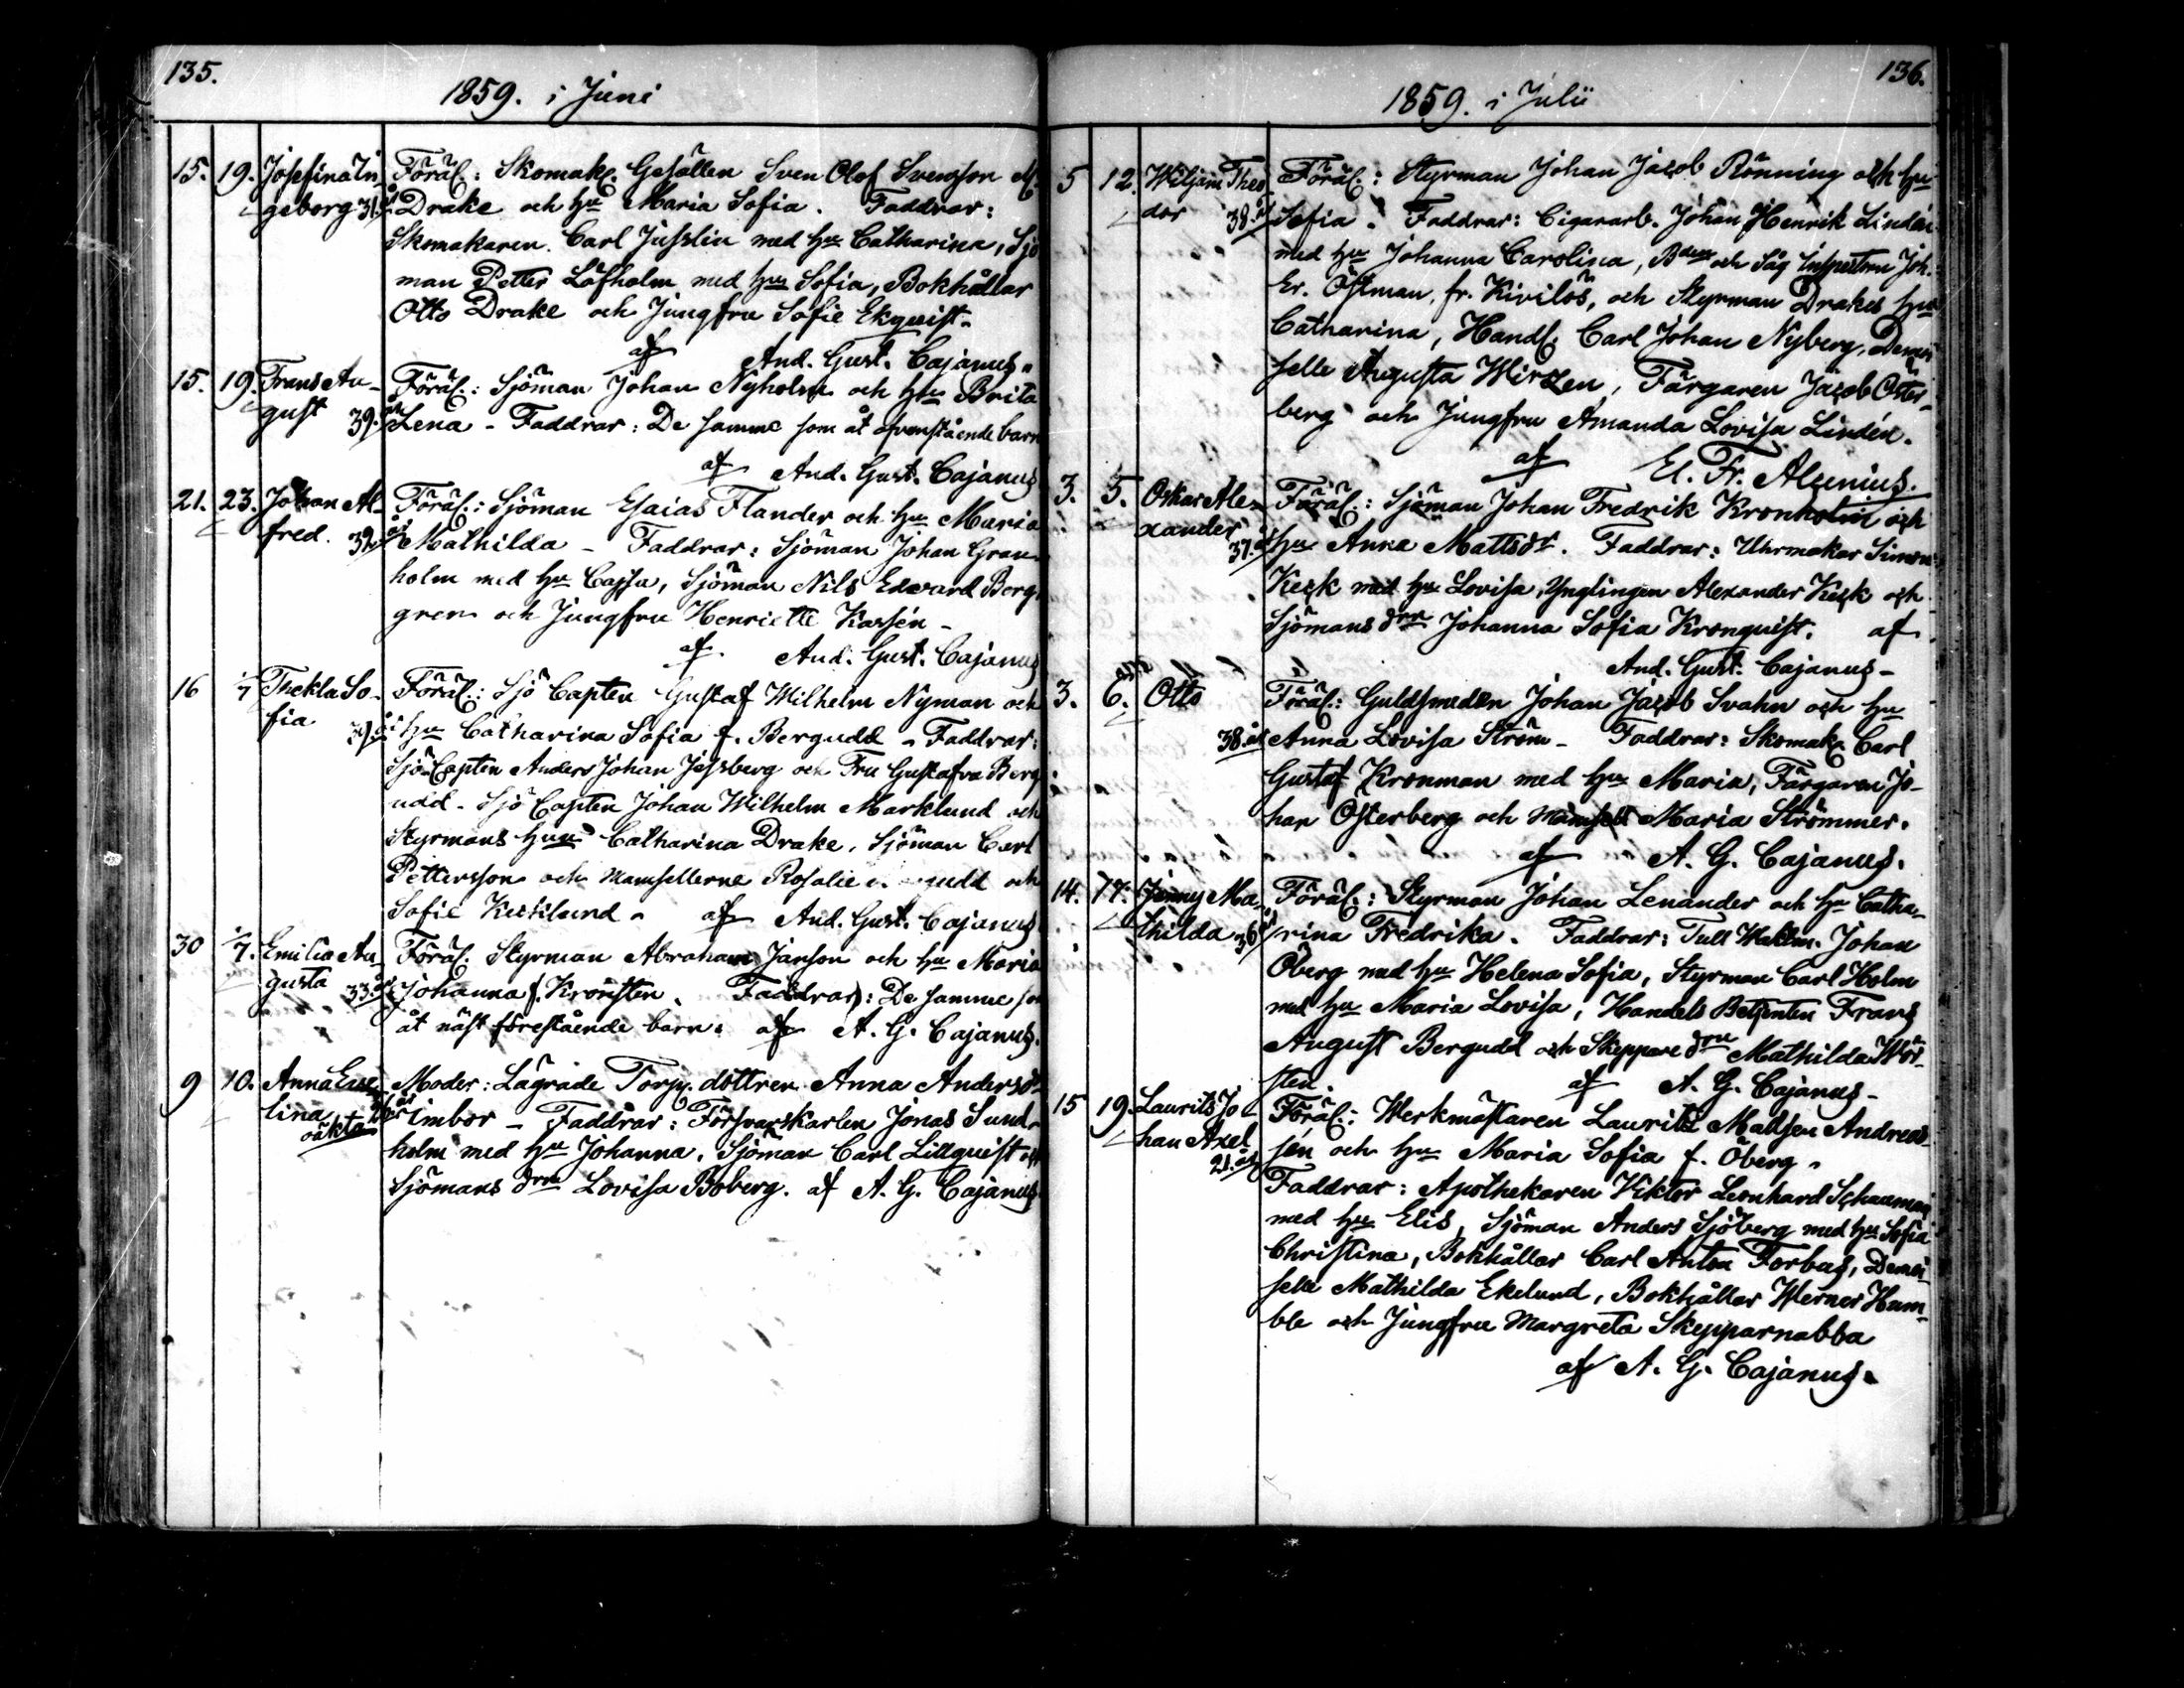 135.
1859. i Juni
15. 19. Josefina In- Föräl.: Skomak. Gesällen Sven Olof Svensson
geborg 31. år Drake och hu Maria Sofia. Faddrar:
Skomakaren Carl Jusslin med hu Catharina, Sjö
man Petter Löfholm med hu Sofia, Bokhållar
Otto Drake och Jungfru Sofie Ekquist.
af And. Gust. Cajanus.
15. 19. Frans Au- Föräl.: Sjöman Johan Nyholm och hu Brita
gust 39. år Lena - Faddrar: De samme som åt ofvanstående barn
af And. Gust. Cajanus
21. 23. Johan Al- Föräl.: Sjöman Esaias Flander och hu Maria
fred. 32. år Mathilda - Faddrar: Sjöman Johan Gran-
holm med hu Cajsa, Sjöman Nils Edvard Berg
gren och Jungfru Henriette Kassén -
af And. Gust. Cajanus
16 1/7 Thekla So- Föräl.: Sjö Capten Gustaf Wilhelm Nyman och
fia 39 år hu Catharina Sofia f. Bergudd - Faddrar:
Sjö Capten Anders Johan Jessberg och Fru Gustafva Berg
udd - Sjö Capten Johan Wilhelm Marklund och
Styrmans hu Catharina Drake, Sjöman Carl
Pettersson och Mamsellerne Rosalie udd och
Sofie af And. Gust. Cajanus
30 1/7. Emilia Au- Föräl. Styrman Abraham Janson och hu Maria
gusta 33. år Johanna f. Kronsten. Faddrar: De samme so
åt näst förestående barn. af A. G. Cajanus.
9 10. Anna Eve- Moder: Lägrade Torp. dottren Anna Andersdr
lina 26 år Imbor - Faddrar: Försvarskarlen Jonas Sund-
oäkta holm med hu Johanna, Sjöman Carl Lillquist och
Sjömans drn Lovisa Boberg. af A. G. Cajanus
136.
1859. i Julii
5 12. Wiljam Theo Föräl.: Styrman Johan Jacob Rönning och hu
dor 38. år Sofia. Faddrar: Cigararb. Johan Henrik Lindén
med hu Johanna Carolina, Bden och Såg Inspectorn Joh.
Er. Östman, fr. Kivilös, och Styrman Drakes hu
Catharina, Handl. Carl Johan Nyberg, Demoi
selle Augusta Wirzen, Färgaren Jacob Öster-
berg och Jungfru Amanda Lovisa Lindén.
af El. Fr. Alcenius.
3. 5. Oskar Ale- Föräl.: Sjöman Johan Fredrik Kronholm och
xander 37. år hu Anna Mattsdr. Faddrar: Uhrmakar Simon
Keck med hu Lovisa, Ynglingen Alexander Keck och
Sjömans drn Johanna Sofia Kronquist. af
And. Gust. Cajanus -
3. 6. Otto Föräl.: Guldsmeden Johan Jacob Svahn och hu
38. år Anna Lovisa Ström - Faddrar: Skomak. Carl
Gustaf Kronman med hu Maria, Färgaren Jo-
han Österberg och Mamsell Maria Strömmer.
af A. G. Cajanus.
14. 17. Jenny Ma- Föräl.: Styrman Johan Lenander och hu Catha-
thilda 36 år rina Fredrika. Faddrar: Tull Waktm. Johan
Öberg med hu Helena Sofia, Styrman Carl Holm
med hu Maria Lovisa, Handels Betjenten Frans
August Bergudd och Skeppare drn Mathilda Wör-
sten. af A. G. Cajanus -
15 19. Laurits Jo- Föräl.: Werkmästaren Laurits Madsen Andreas-
han Axel sén och hu Maria Sofia f. Öberg.
21. år Faddrar: Apothekaren Viktor Leonhard Schauman
med hu Elis, Sjöman Anders Sjöberg med hu Sofia
Christina, Bokhållar Carl Anton Forbus, Demoi-
selle Mathilda Ekelund, Bokhållar Werner Hum-
ble och Jungfru Margreta Skepparnabba
af A. G. Cajanus.